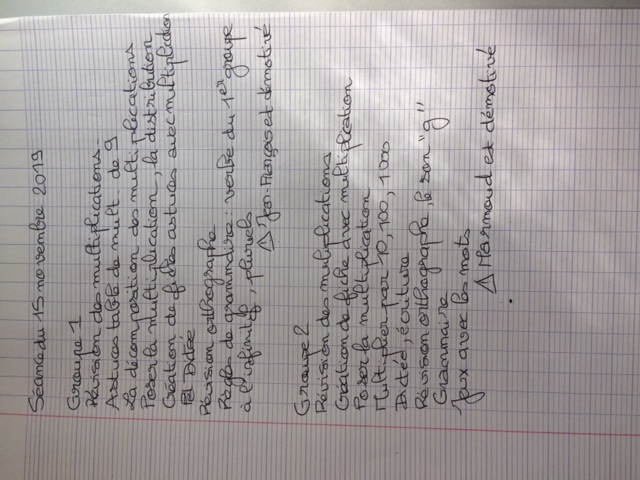 Séance du 15 novembre 2019
Groupe 1
Révision des multiplications.
Astuces table de mult. de 9
La décomposition des multiplications
Poser la multiplication, la distribution
Créations de fiches astuces avec multiplication
Pt Dictée
Révision orthographe
Règles de grammaire : verbe du 1er groupe
à l'infinitif, pluriels
△ Jean-François est démotivé
Groupe 2
Révision des multiplications
Création de fiche avec multiplication
Poser la multiplication
Multiplier par 10, 100, 1000
Dictée, écriture
Révision orthographe, le son "g"
Grammaire
Jeux avec les mots
△ est démotivé